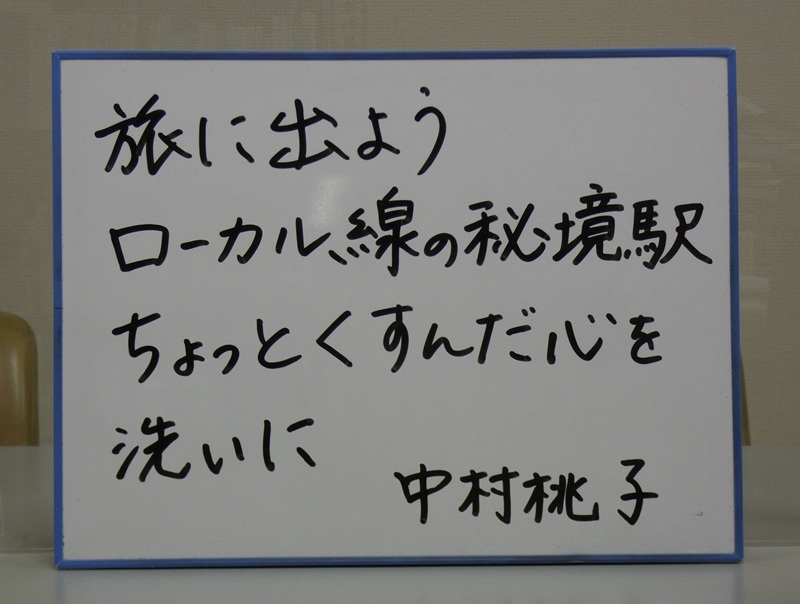 旅に出よう
ローカル線の秘境駅
ちょっとくすんだ心を
洗いに
中村桃子